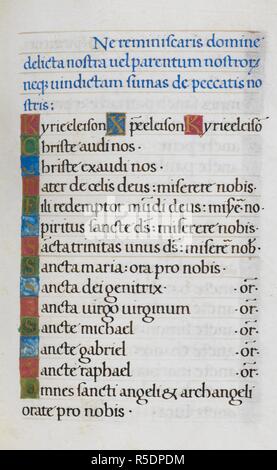 Ne reminiscaris domine
delicta nostra uel parentum nostror,
neq, uindictam sumas de peccatis no
stris:
Kyrieeleison Xp̄eeleison Kyrieeleisō
Christe audi nos ·
Christe exaudi nos ·
Pater de celis deus: miserere nobis·
Fili redemptor mūdi deus: mise̅re no·
Spiritus sancte ds̄: miserere nobis·
Sācta trinitas unus ds̄: misere̅ nob·
Sancta maria: ora pro nobis ·
Sancta dei genitrix · or̄·
Sancta uirgo uirginum · or̄·
Sancte michael · or̄·
Sancte gabriel · or̄·
Sancte raphael · or̄·
Omnes sancti angeli & archangeli
orate pro nobis ·
alamy
Image ID: R5DPDM
www.alamy.com